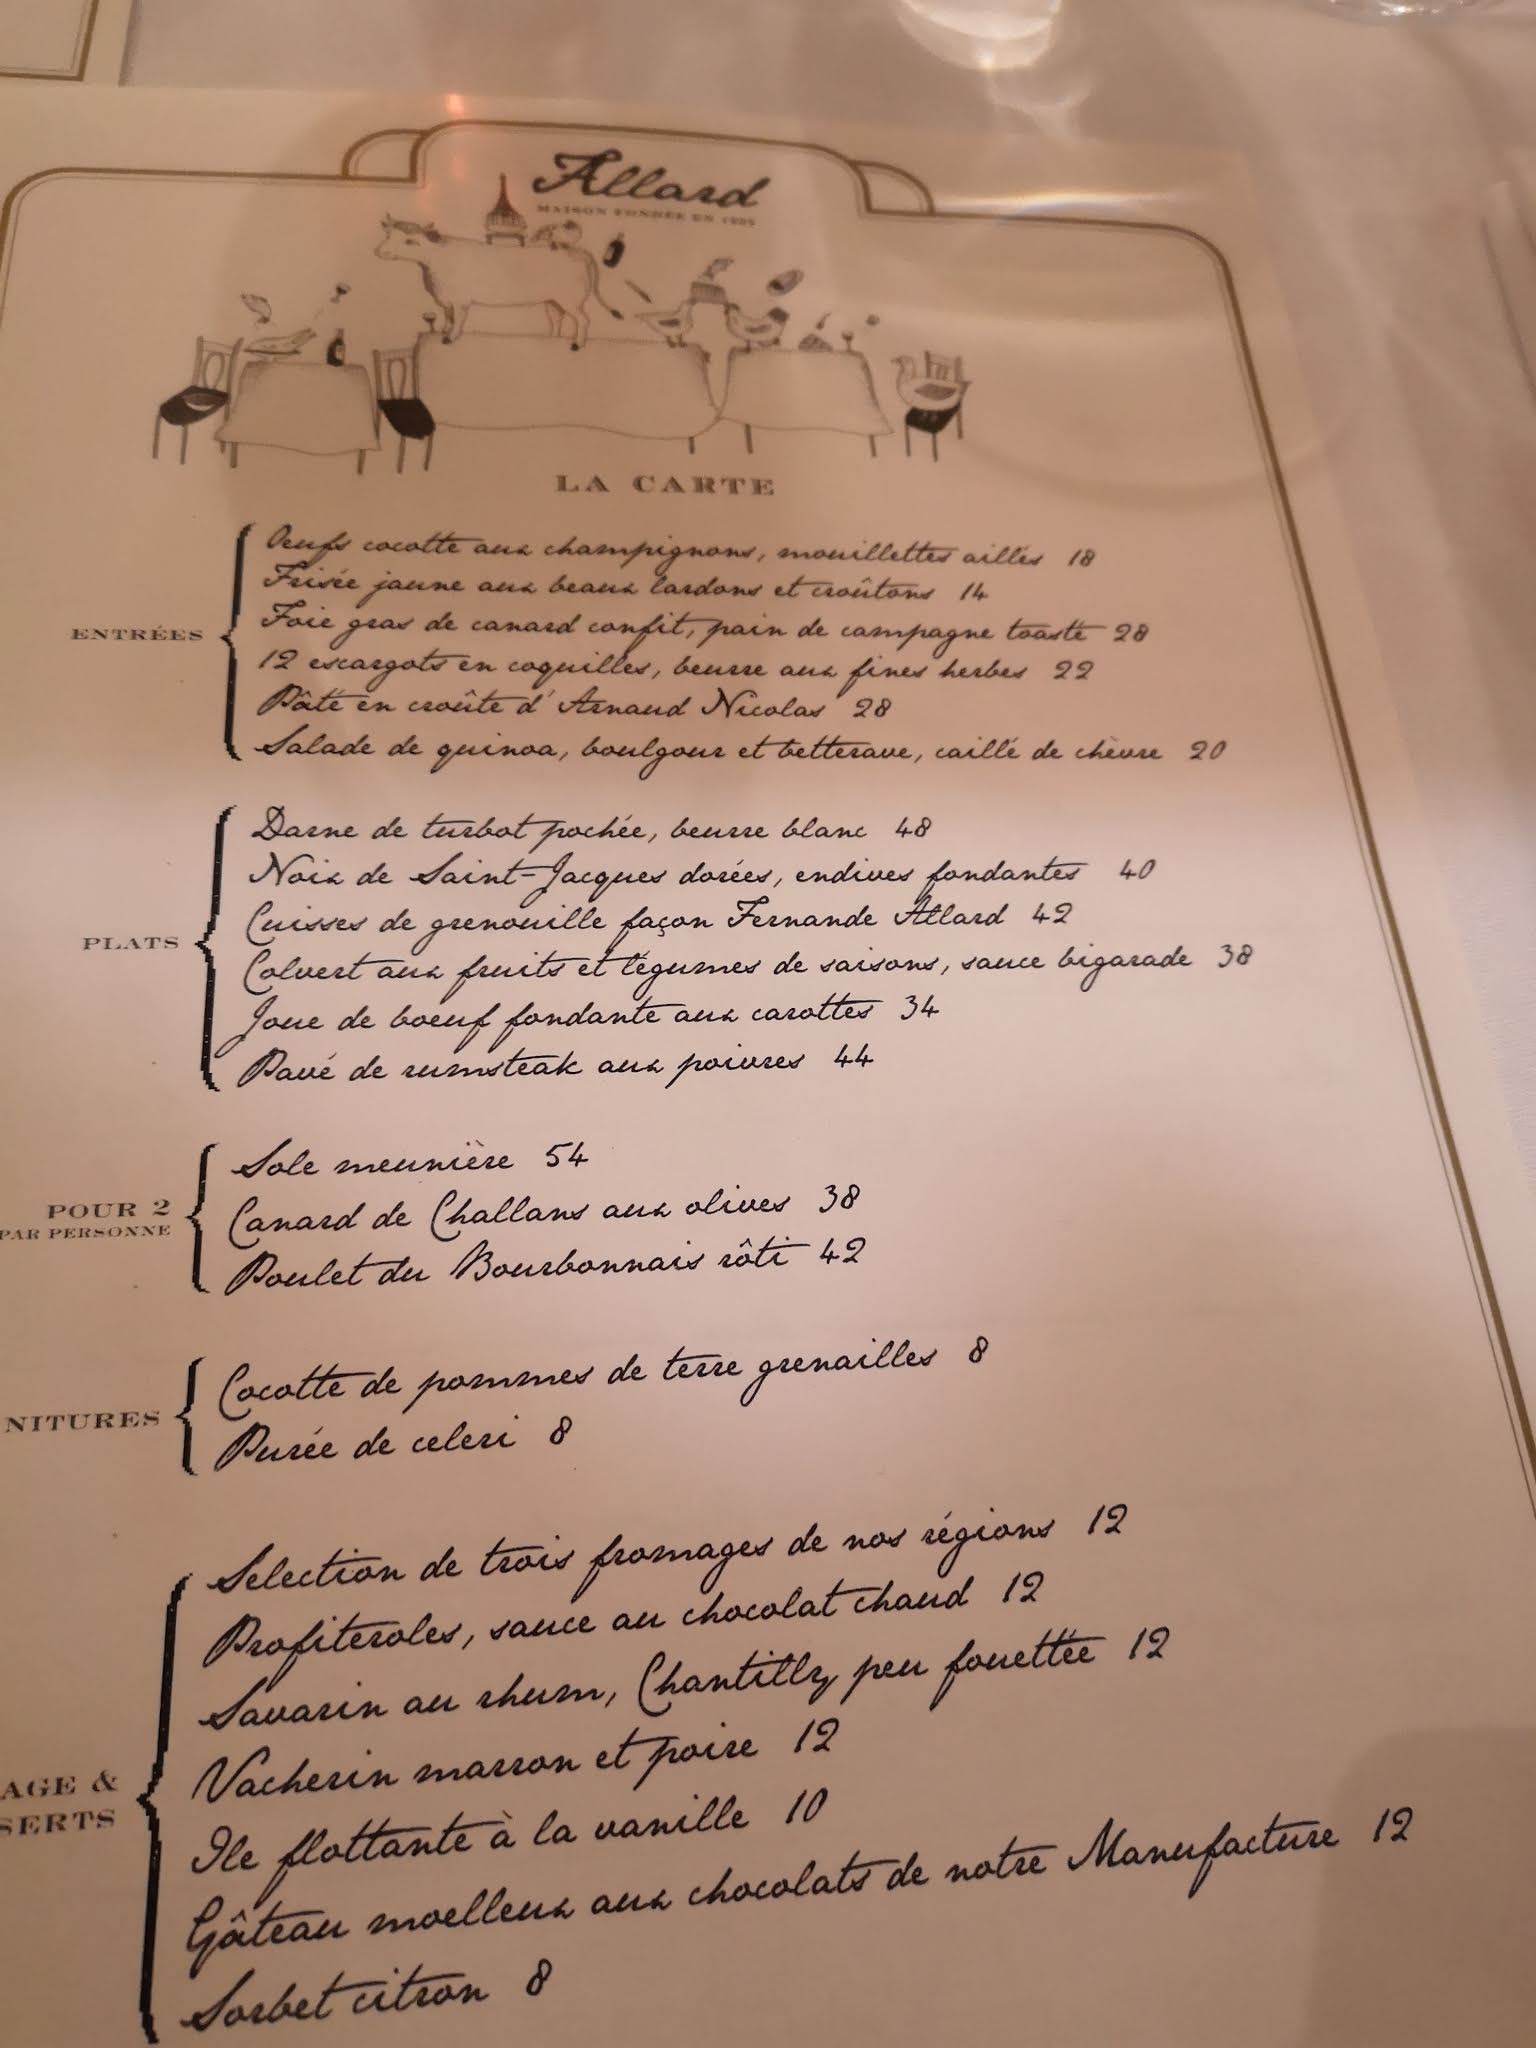 Allard
MAISON FONDÉE EN
LA CARTE
ENTRÉES
Oeufs cocotte aux champignons, mouillettes aillés 18
Frisée jaune aux beaux lardons et croûtons 14
Foie gras de canard confit, pain de campagne toasté 28
12 escargots en coquilles, beurre aux fines herbes 22
Pâté en croûte d'Arnaud Nicolas 28
Salade de quinoa, boulgour et betterave, caillé de chèvre 20
PLATS
Darne de turbot pochée, beurre blanc 48
Noix de Saint-Jacques dorées, endives fondantes 40
Cuisses de grenouille façon Fernande Allard 42
Colvert aux fruits et légumes de saisons, sauce bigarade 38
Joue de boeuf fondante aux carottes 34
Pavé de rumsteak aux poivres 44
POUR 2
PAR PERSONNE
Sole meunière 54
Canard de Challans aux olives 38
Poulet du Bourbonnais rôti 42
NITURES
Cocotte de pommes de terre grenailles 8
Purée de celeri 8
AGE &
SERTS
Selection de trois fromages de nos régions 12
Profiteroles, sauce au chocolat chaud 12
Savarin au rhum, Chantilly peu fouettée 12
Vacherin marron et poire 12
Ile flottante à la vanille 10
Gâteau moelleux aux chocolats de notre Manufacture 12
Sorbet citron 8